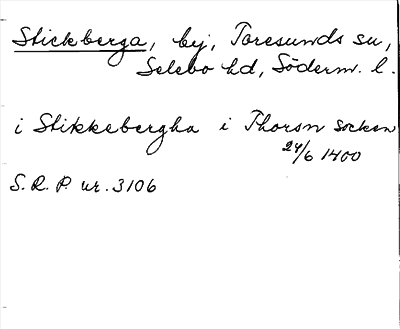 Stickberga, by, Toresunds sn,
Selebo hd, Söderm. l.
i Stikkebergha i Thorsn socken
24/6 1400
S.R.P. nr. 3106